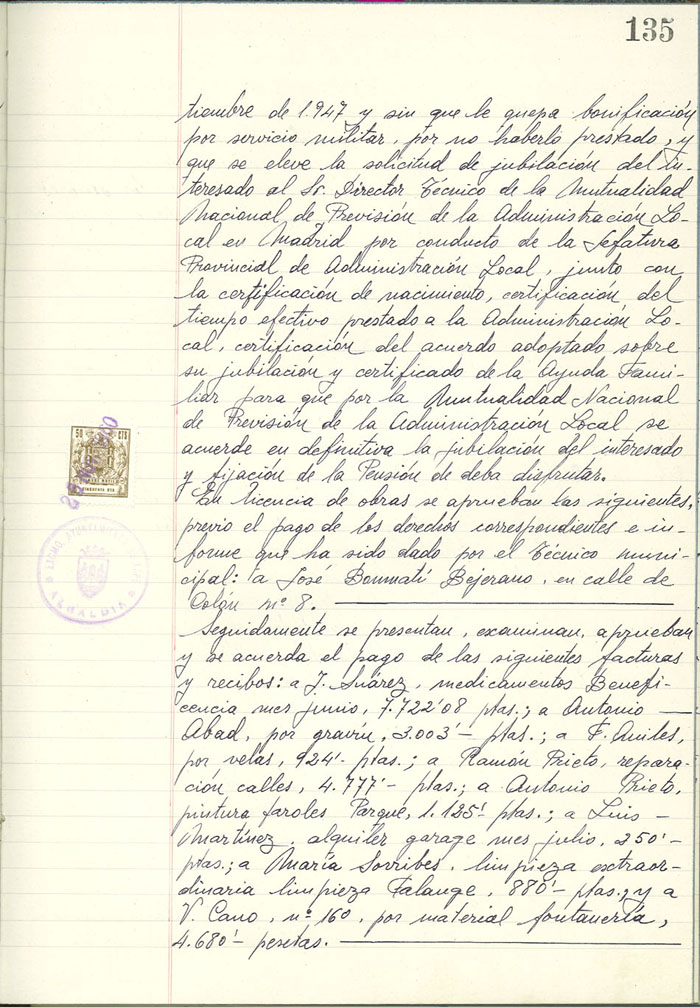 135
tiembre de 1.947 y sin que le quepa bonificación
por servicio militar, por no haberlo prestado, y
que se eleve la solicitud de jubilación del in-
teresado al Sr. Director Técnico de la Mutualidad
Nacional de Previsión de la Administración Lo-
cal en Madrid por conducto de la Jefatura
Provincial de Administración Local, junto con
la certificación de nacimiento, certificación del
tiempo efectivo prestado a la Administración Lo-
cal, certificación del acuerdo adoptado sobre
su jubilación y certificado de la Ayuda Fami-
liar para que por la Mutualidad Nacional
de Previsión de la Administración Local se
acuerde en definitiva la jubilación del interesado
y fijación de la Pensión de deba disfrutar.
En licencia de obras se aprueban las siguientes,
previo el pago de los derechos correspondientes e in-
forme que ha sido dado por el Técnico muni-
cipal: a José Bonmatí Bejerano, en calle de
Colón nº 8.
Seguidamente se presentan, examinan, aprueban
y se acuerda el pago de las siguientes facturas
y recibos: a J. Suárez, medicamentos Benefi-
cencia mes junio, 7.722'08 ptas.; a Antonio
Abad, por gravin, 3.003'- ptas.; a F.
por velas, 924'- ptas.; a Ramón Prieto, repara-
ción calles, 4.777'- ptas.; a Antonio Prieto,
pintura faroles Parque, 1.125'- ptas.; a Luis
Martínez, alquiler garage mes julio, 250'-
ptas.; a María Sorribes, limpieza extraor-
dinaria limpieza Falange, 880'- ptas.; y a
V. Cano, nº 160, por material fontanería,
4.680'- pesetas.
50 CTS
ALCALDIA